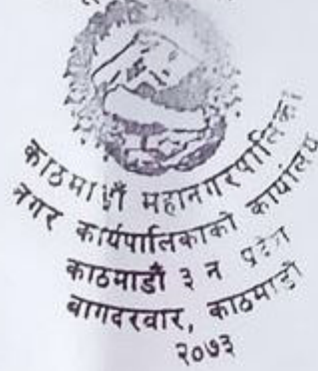 काठमाडौँ महानगरपालिका
नगर कार्यपालिकाको कार्यालय
काठमाडौँ ३ न प्रदेश
बागदरवार, काठमाडौँ
२०७३